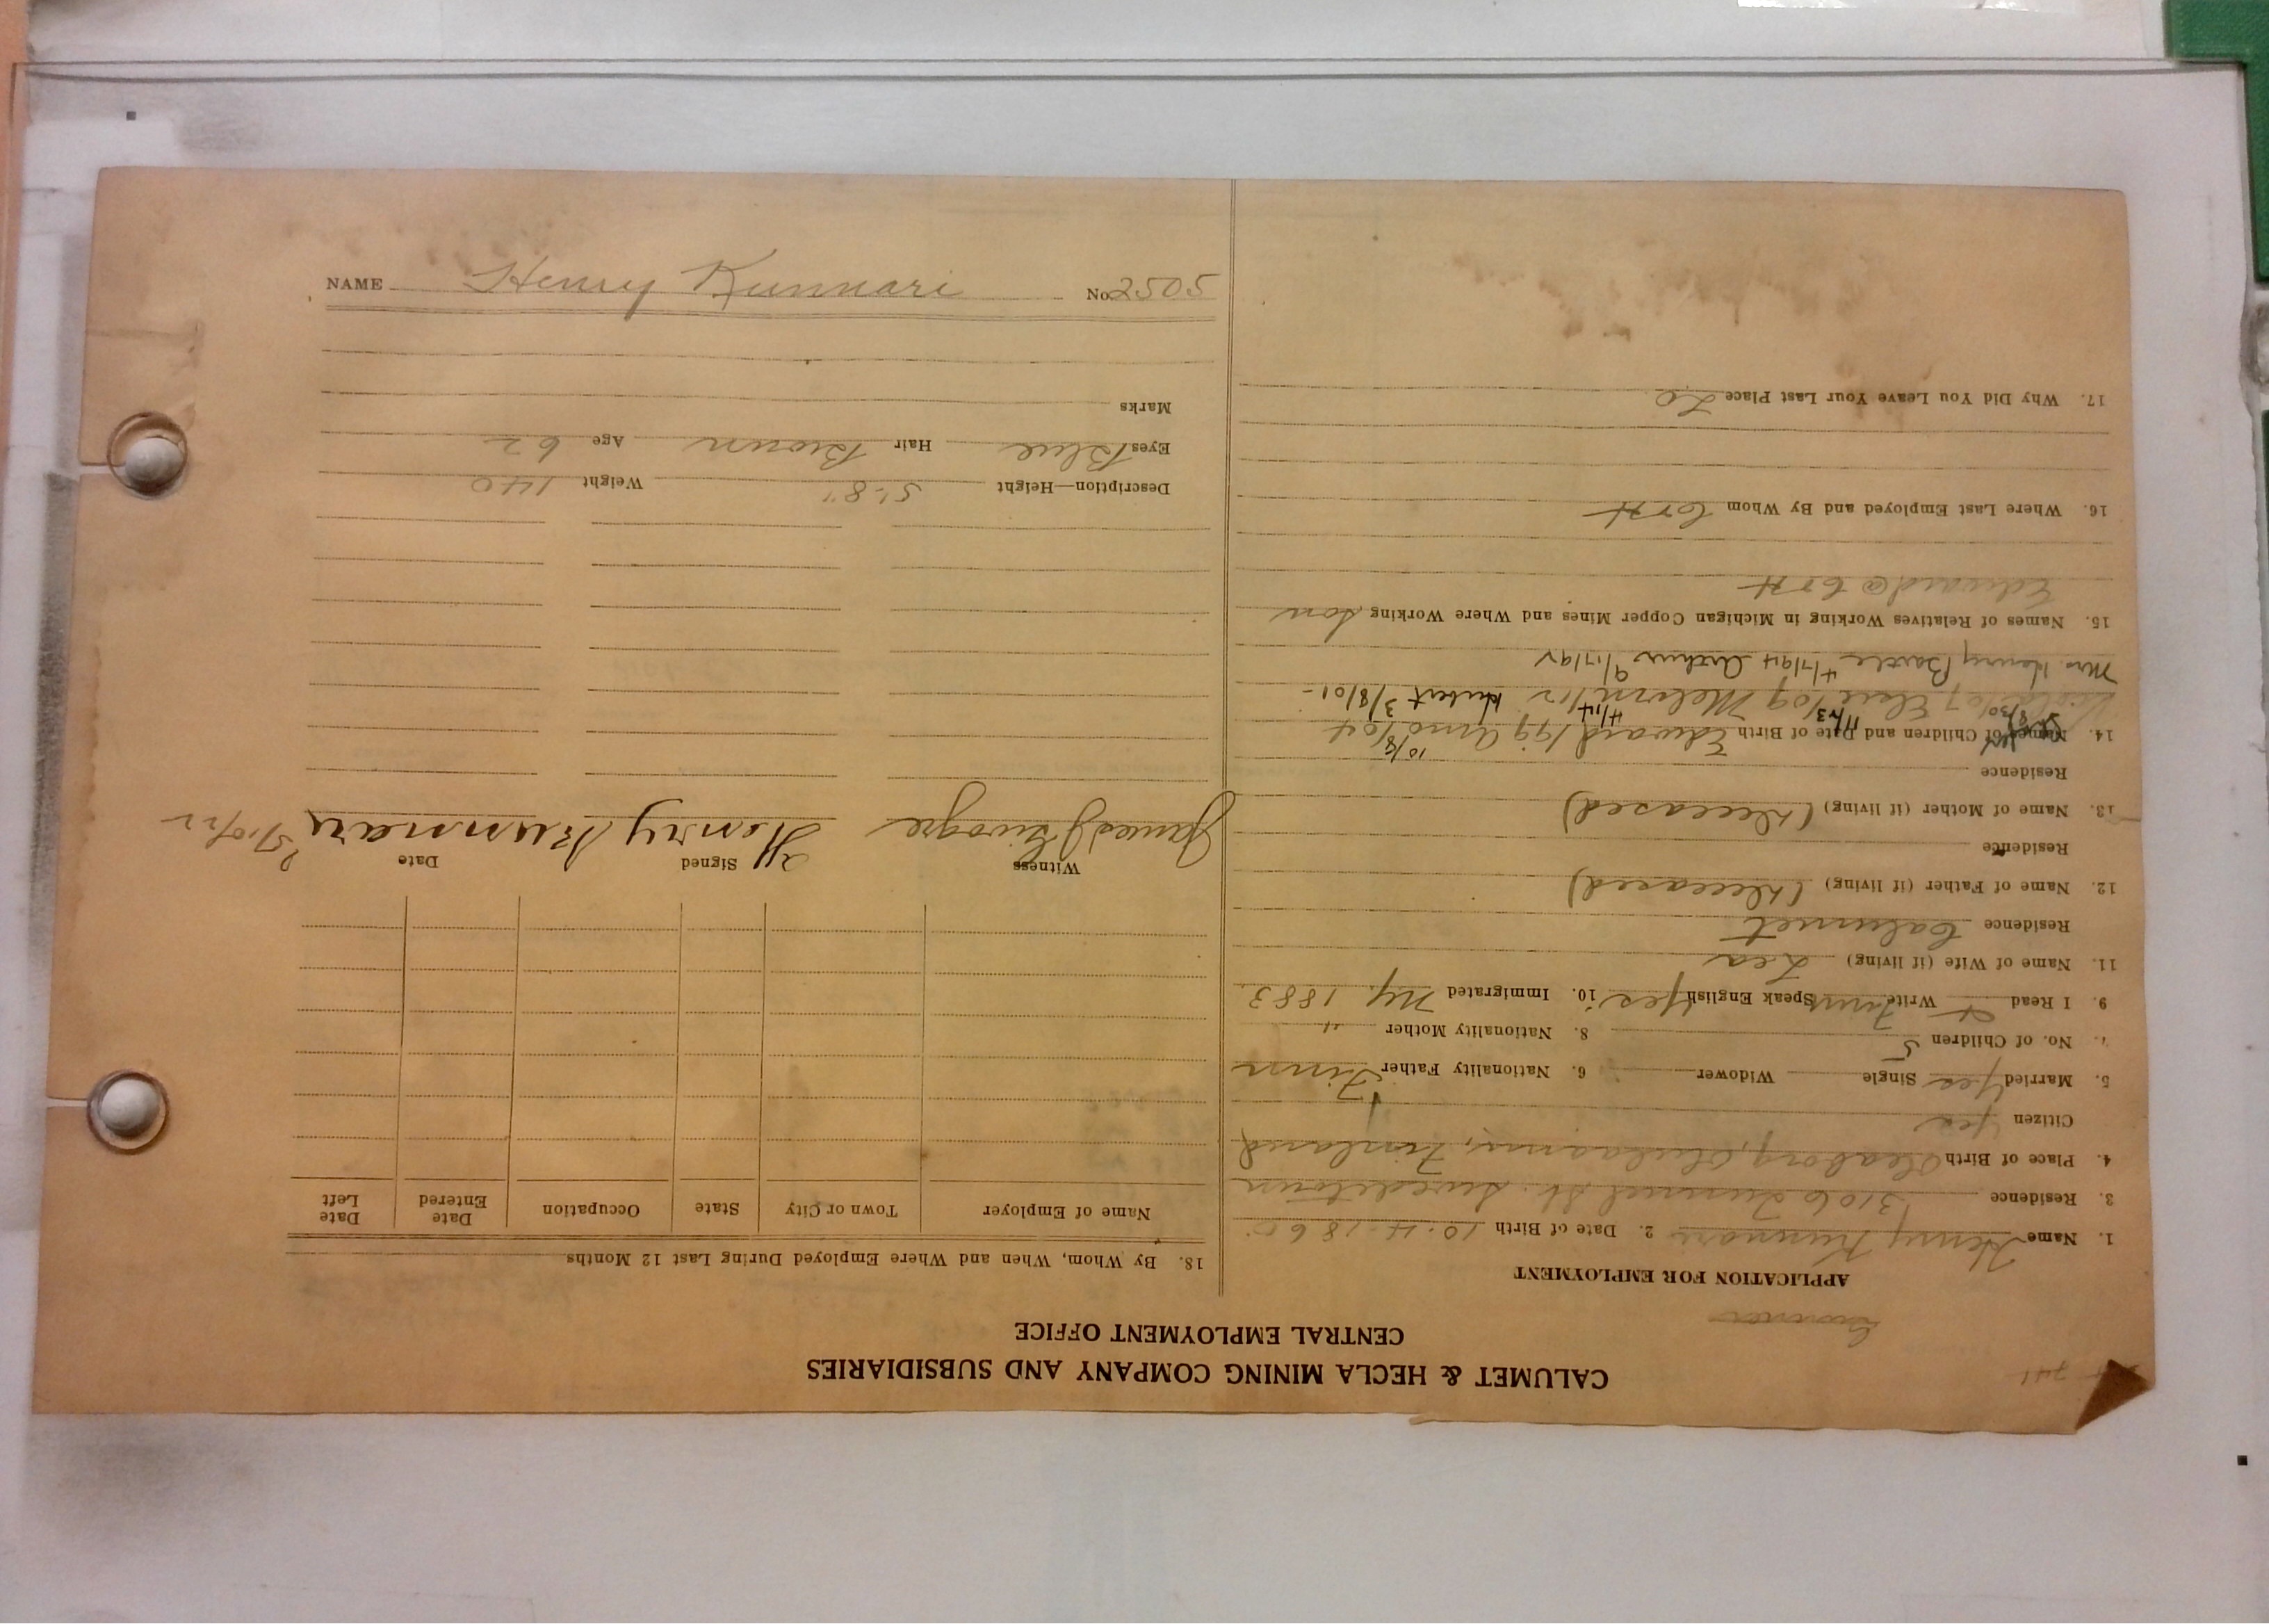 CALUMET & HECLA MINING COMPANY AND SUBSIDIARIES
CENTRAL EMPLOYMENT OFFICE
APPLICATION FOR EMPLOYMENT
1. Name Henry Kunnari 2. Date of Birth 10-4-1860
3. Residence 3106 Tunnel St. Swedetown
4. Place of Birth Oleaborg, Finland
Citizen Yes
5. Married Yes Single Widower 6. Nationality Father Finn
7. No. of Children 5 8. Nationality Mother "
9. I Read Write Finn Speak English Yes 10. Immigrated Ny. 1883
11. Name of Wife (if living) Lea
Residence Calumet
12. Name of Father (if living) (Deceased)
Residence
13. Name of Mother (if living) (Deceased)
Residence
14. Names of Children and Date of Birth Edward Arno
Elsie /09 Melvin /12 Hubert 3/8/01-
Mrs Henry Arthur 9/17/97
15. Names of Relatives Working in Michigan Copper Mines and Where Working Son
Edward @ C & H
16. Where Last Employed and By Whom C & H
17. Why Did You Leave Your Last Place Lo
18. By Whom, When and Where Employed During Last 12 Months
Name of Employer Town or City State Occupation Date Entered Date Left
Witness Signed Date
James J Henry Kunnari
Description—Height 5'-8" Weight 140
Eyes Blue Hair Brown Age 62
Marks
NAME Henry Kunnari No. 2505